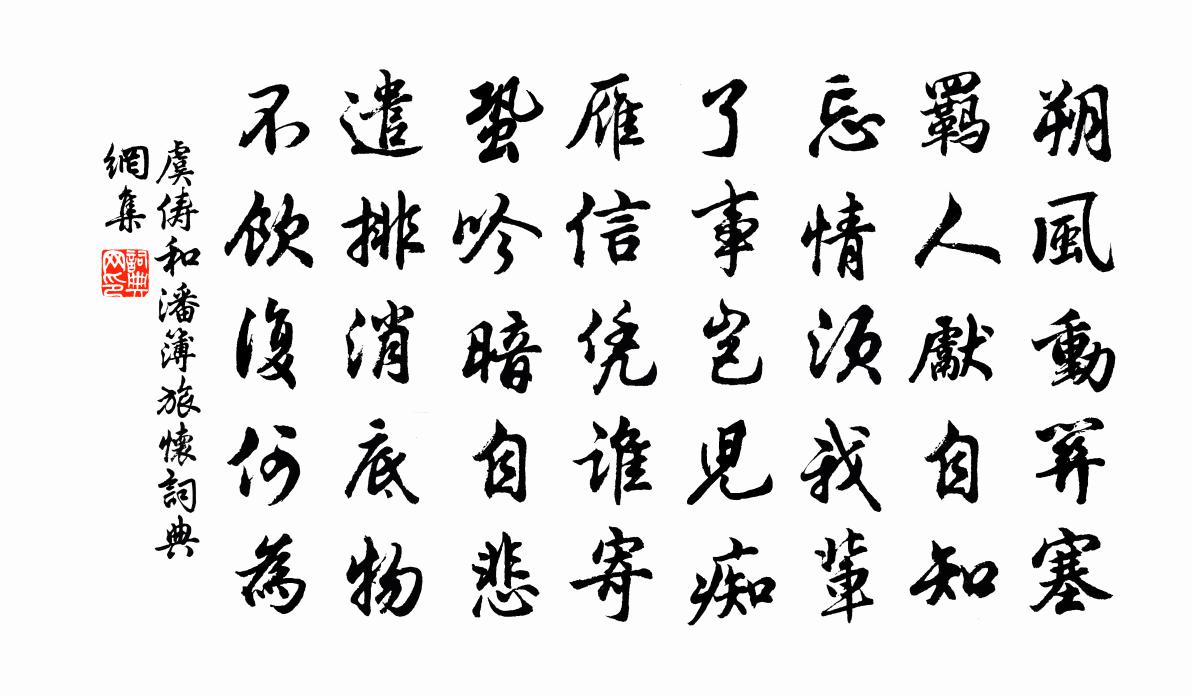 朔風動關塞
羈人獻自知
忘情須我輩
了事豈児痴
雁信凭誰寄
蛩吟暗自悲
遣排消底物
不飲復何為
虞儔和潘簿旅懷詞典
網集
詞典网印